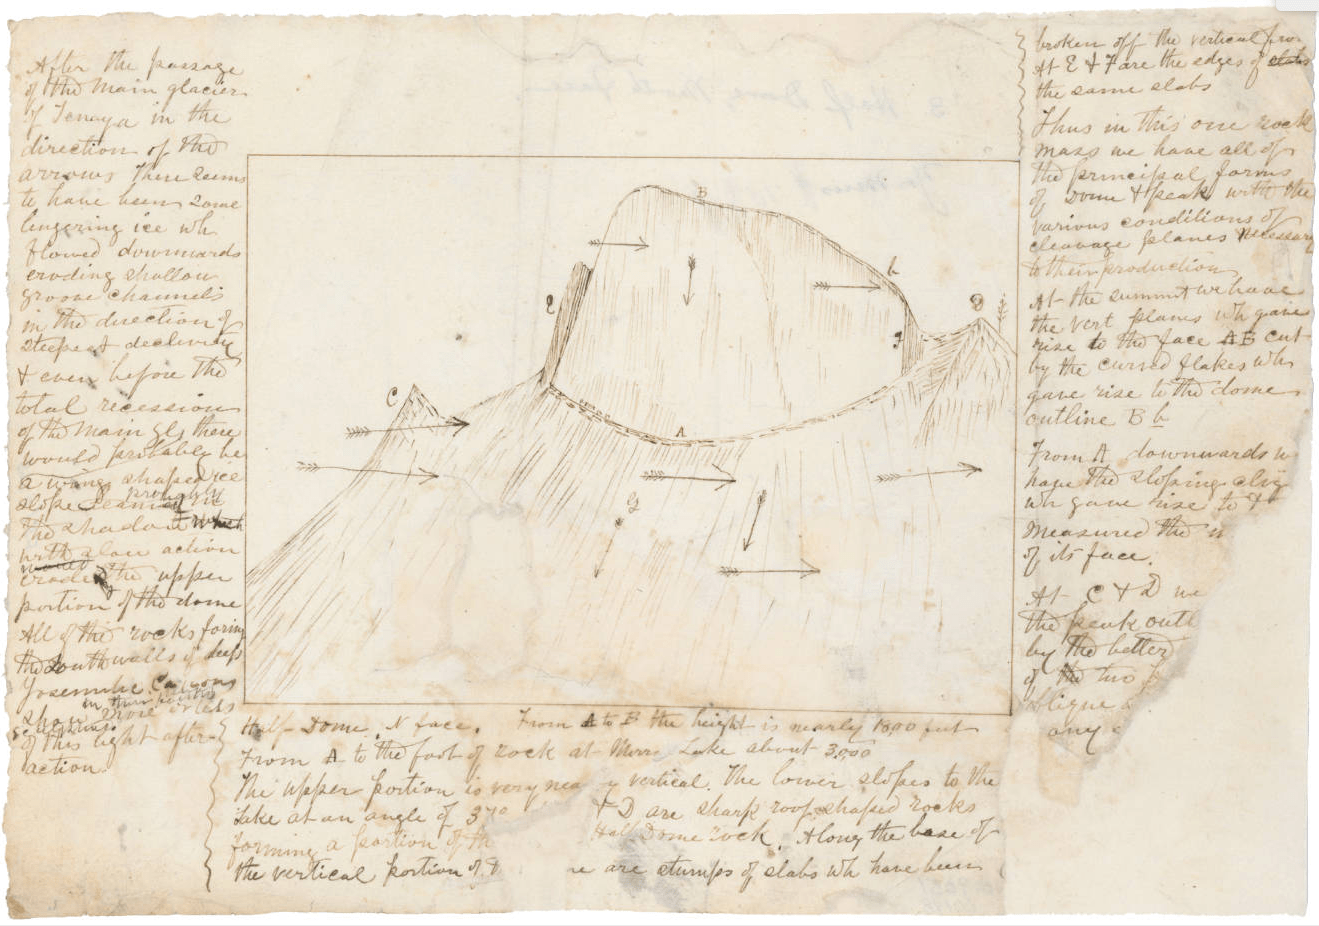 After the passage
of the main glacier
of Tenaya in the
direction of the
arrows there seems
to have been some
lingering ice wh
flowed downwards
eroding shallow
groove channels
in the direction of
steepest declivity
& even before the
total recession
of the main gl, there
would probably be
a wing shaped ice
slope
the shadow which
with slow action
would
eroded the upper
portion of the dome
All of the rocks forming
the South walls of deep
Yosemite Canyons
show more or less
in their position
of this light after
action.
B
b
e
f
D
C
A
G
Half-Dome, N face. From A to B the height is nearly 1800 feet
From A to the foot of rock at Mirror Lake about 3,000
The upper portion is very nea y vertical. The lower slopes to the
Lake at an angle of 37°
& D are sharp roof-shaped rocks
forming a portion of th
Half Dome rock. Along the base of
the vertical portion of t
ne are stumps of slabs wh have been
broken off the vertical fro
At E & F are the edges of slabs
the same slabs
Thus in this one rock
mass we have all of
the principal forms
of Dome & peak with the
various conditions of
cleavage planes necessary
to their production
At the summit we have
the vert planes wh gave
rise to the face AB cut
by the curved flakes wh
gave rise to the dome
outline B b
From A downwards w
have the sloping cliv
wh gave rise to &
measured the
of its face.
At C & D we
the peak outl
by the better
of the two
oblique
any